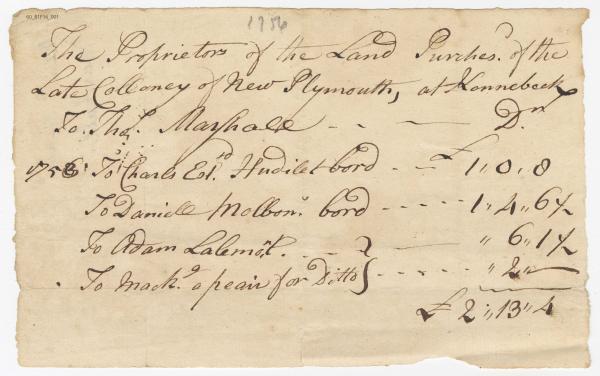 90_81F16_001
1756
The Proprietors of the Land Purches.d of the
Late Colloney of New Plymouth, at Kennebeck
To Tho.s Marshall - - — Dr
1756 To Charls Est.rd Hudilet bord - - — £ 1,, 0,, 8
To Daniell Molbon.s bord - - - - - 1,, 4,, 6½
To Adam Lalemot. - - - } ,, 6,, 1½
To Mack.g a peair for Ditto } - - - - - ,, 2,, —
£ 2,, 13,, 4